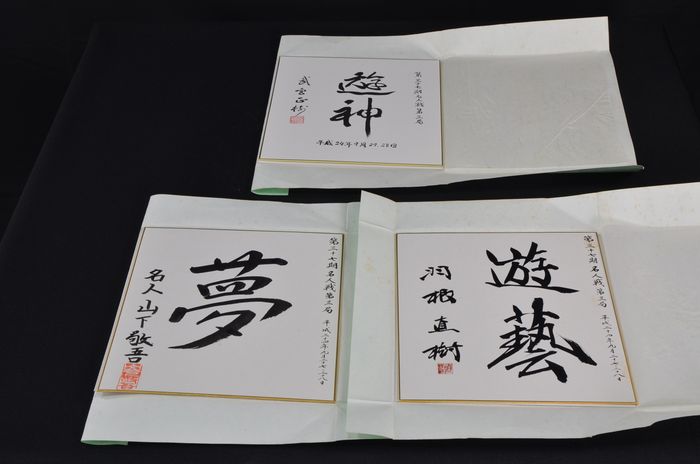 第三十七期名人戦第三局
遊神
武宮正樹
平成24年9月27.28日
第三十七期名人戦第三局
平成二十四年九月二十七・二十八日
夢
名人 山下敬吾
第三十七期名人戦第三局
平成二十四年九月二十七・二十八日
遊藝
羽根直樹